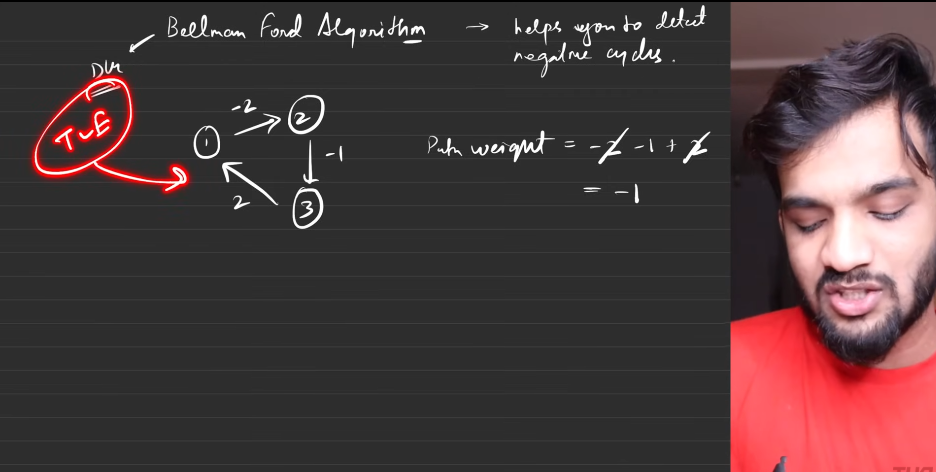 Bellman Ford Algorithm → helps you to detect
negative cycles.
TLE
-2
1
2
-1
2
3
Path weight = -2 -1 + 2
= -1